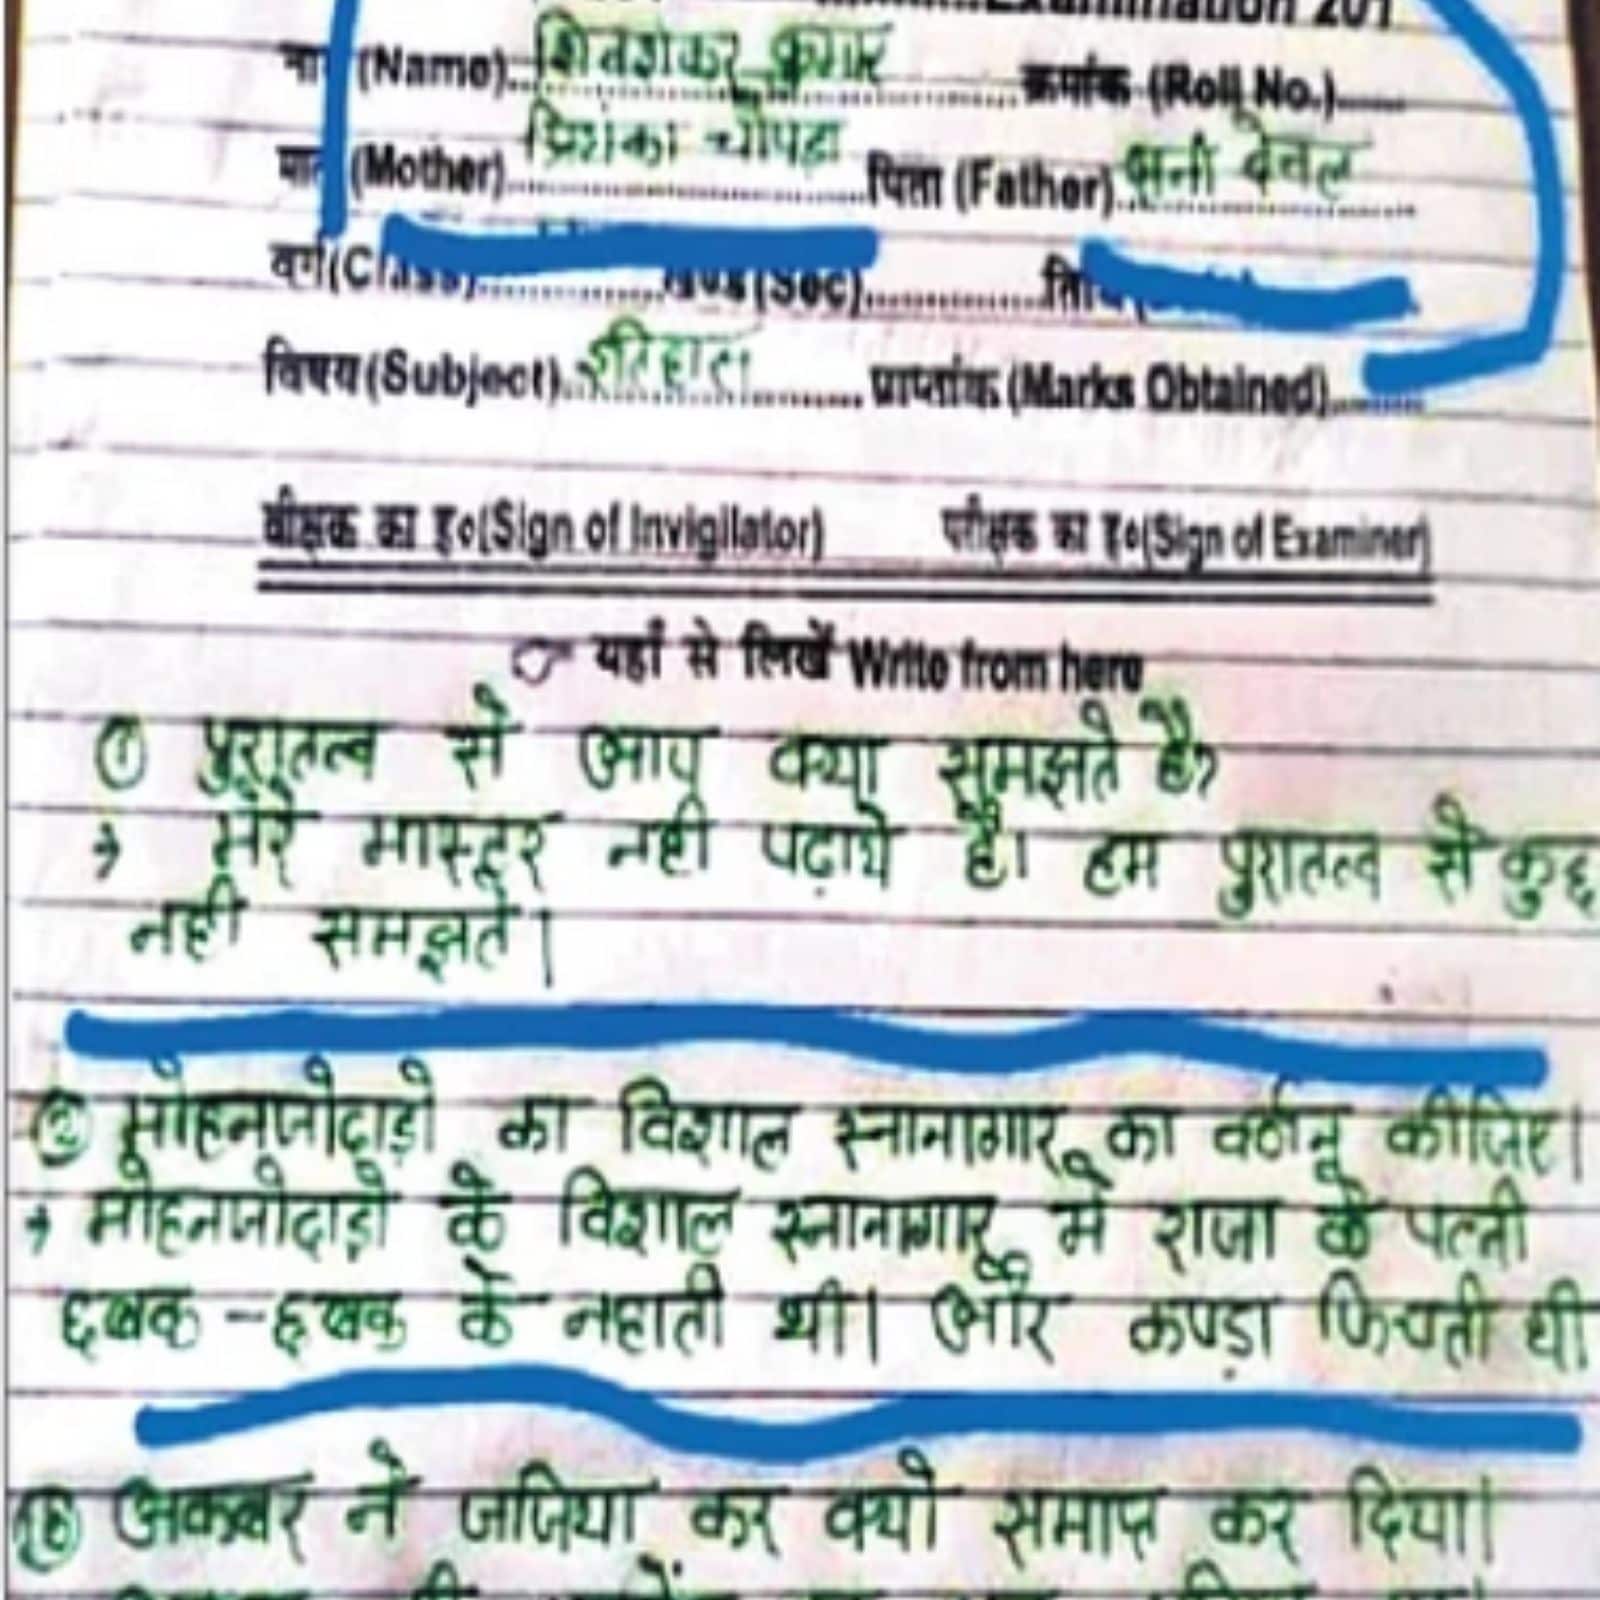 Examination 201
(Name)..शिवशंकर कुमार.....क्रमांक (Roll No.)......
(Mother)..प्रियंका चौपड़ा.....पिता (Father)..सनी देवल.....
वर्ग(Class)..............खण्ड(Sec)..............
विषय(Subject)..इतिहास........प्राप्तांक (Marks Obtained).......
वीक्षक का ह०(Sign of Invigilator) परीक्षक का ह०(Sign of Examiner)
यहाँ से लिखें Write from here
① पुरातत्व से आप क्या समझते है?
→ मेरे मास्टर नही पढ़ाये है। हम पुरातत्व से कुछ
नही समझते।
② मोहनजोदाड़ो का विशाल स्नानागार का वर्णन कीजिए।
→ मोहनजोदाड़ो के विशाल स्नानागार में राजा के पत्नी
छपक-छपक के नहाती थी। और कपड़ा फिचती थी
अकबर ने जजिया कर क्यों समाप्त कर दिया।